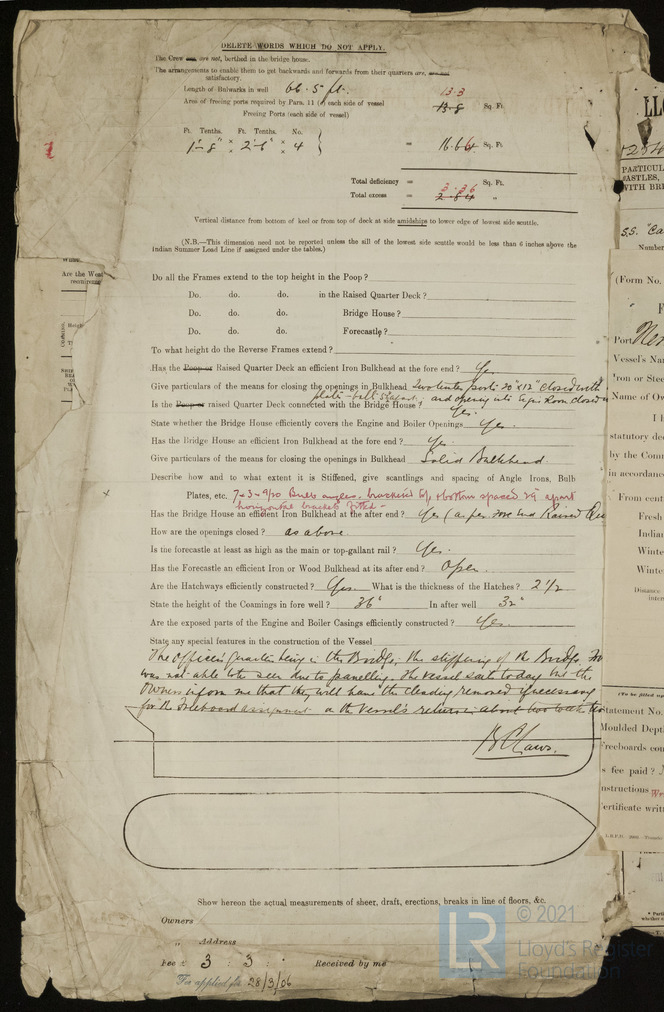 DELETE WORDS WHICH DO NOT APPLY.
The Crew are, are not, berthed in the bridge house.
The arrangements to enable them to get backwards and forwards from their quarters are, are not
satisfactory.
Length of Bulwarks in well 66.5 ft.
13.3
Area of freeing ports required by Para. 11 ( each side of vessel 13.8 Sq. Ft.
Freeing Ports (each side of vessel)
Ft. Tenths. Ft. Tenths. No.
1-8" × 2'-6" × 4 } = 16.66 Sq. Ft.
Total deficiency = Sq. Ft.
3.36
Total excess = 2.84 "
Vertical distance from bottom of keel or from top of deck at side amidships to lower edge of lowest side scuttle.
(N.B.—This dimension need not be reported unless the sill of the lowest side scuttle would be less than 6 inches above the
Indian Summer Load Line if assigned under the tables.)
Do all the Frames extend to the top height in the Poop ?
Do. do. do. in the Raised Quarter Deck ?
Do. do. do. Bridge House ?
Do. do. do. Forecastle ?
To what height do the Reverse Frames extend ?
Has the Poop or Raised Quarter Deck an efficient Iron Bulkhead at the fore end ? Yes
Give particulars of the means for closing the openings in Bulkhead Two ports 20"x12" closed with
plates and opening into Engine Room closed
Is the Poop or raised Quarter Deck connected with the Bridge House ? Yes.
State whether the Bridge House efficiently covers the Engine and Boiler Openings Yes.
Has the Bridge House an efficient Iron Bulkhead at the fore end ? Yes.
Give particulars of the means for closing the openings in Bulkhead Solid Bulkhead.
Describe how and to what extent it is Stiffened, give scantlings and spacing of Angle Irons, Bulb
Plates, etc. 7-3-9/20 Bulb angles, bracketed top & bottom spaced 29" apart
horizontal brackets fitted-
Has the Bridge House an efficient Iron Bulkhead at the after end ? Yes (as per fore end Raised
How are the openings closed ? as above.
Is the forecastle at least as high as the main or top-gallant rail ? Yes.
Has the Forecastle an efficient Iron or Wood Bulkhead at its after end ? Open.
Are the Hatchways efficiently constructed ? Yes. What is the thickness of the Hatches ? 2 1/2
State the height of the Coamings in fore well ? 36" In after well 32"
Are the exposed parts of the Engine and Boiler Casings efficiently constructed ? Yes.
State any special features in the construction of the Vessel
The officers quarters being in the Bridge, the stiffening of the Bridge
was not able to be seen due to panelling. The vessel sails today but the
Owners inform me that they will have the cleading removed if necessary
for the Freeboard assignment on the vessel's return in about two weeks
Show hereon the actual measurements of sheer, draft, erections, breaks in line of floors, &c.
Owners
" Address
Fee £ 3 : 3 : " Received by me
Fee applied for 28/3/06
LR
© 2021
Lloyd's Register
Foundation
Are the West
PARTICUL
S.S. "Ca
Number
(Form No.
Port
Vessel's Na
Iron or Stee
Name of Ow
statutory de
by the Com
in accordanc
From cent
Fresh
India
Winte
Winte
Distance
(To be filled up
Statement No.
Moulded Dept
Freeboards cou
s fee paid ?
nstructions
ertificate writt